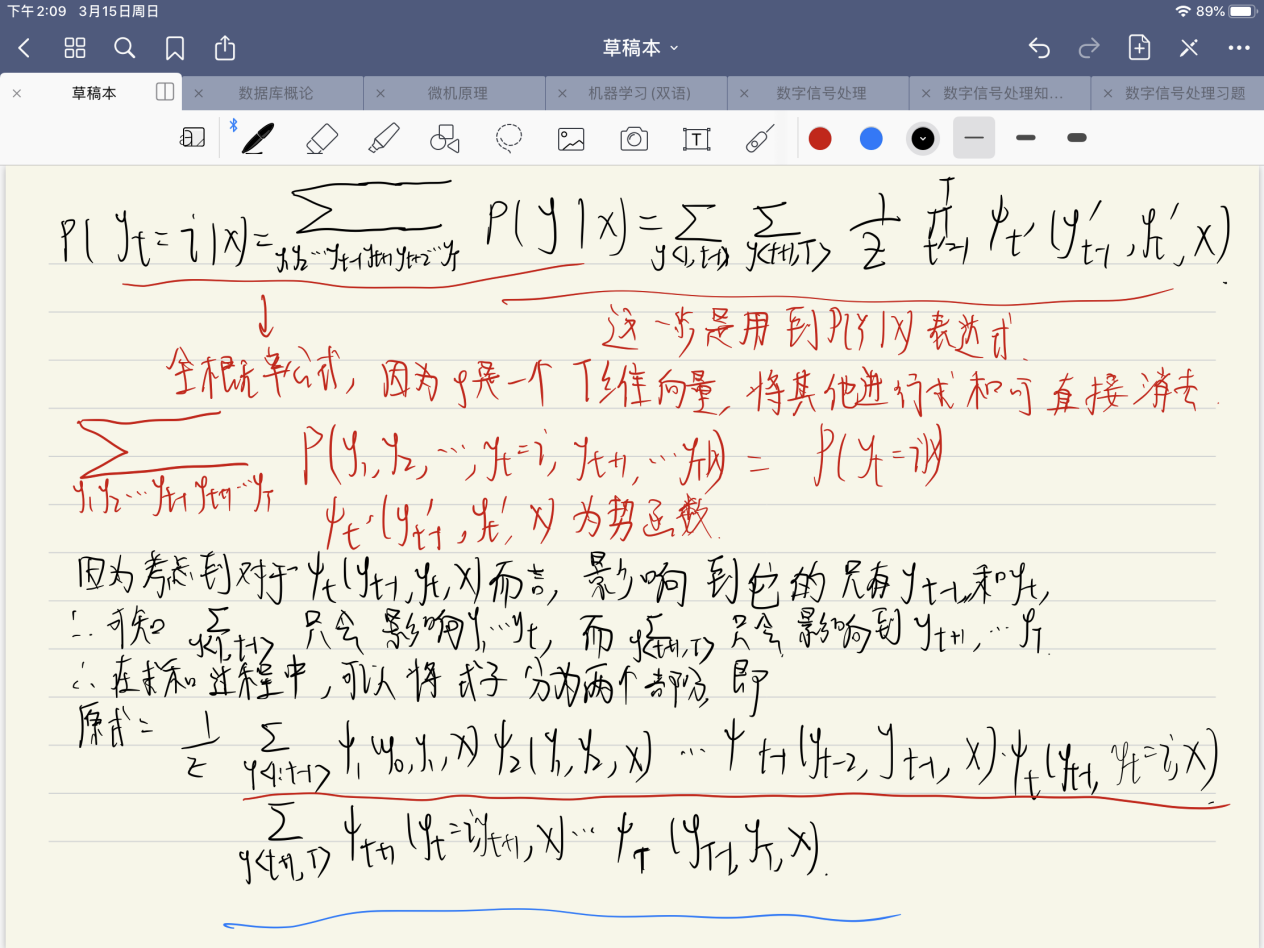 下午2:09 3月15日周日
89%
草稿本
草稿本 数据库概论 微机原理 机器学习(双语) 数字信号处理 数字信号处理知... 数字信号处理习题
P(y_t=i|x)=∑_{y_1y_2…y_{t-1}y_{t+1}y_{t+2}…y_T} P(y|x)=∑_{y<1,t-1>} ∑_{y<t+1,T>} 1/Z ∏_{t'=1}^T ψ_{t'}(y'_{t-1},y'_t,x).
这一步是用到P(y|x)表达式.
全概率公式,因为y是一个T维向量,将其他进行求和可直接消去.
∑_{y_1y_2…y_{t-1}y_{t+1}…y_T} P(y_1,y_2,…,y_t=i,y_{t+1},…y_T|x) = P(y_t=i|x)
ψ_{t'}(y'_{t-1},y'_t,x)为势函数.
因为考虑到对于ψ_t(y_{t-1},y_t,x)而言,影响到它的只有y_{t-1}和y_t,
∴可知 ∑_{y<1,t-1>} 只会影响y_1…y_t,而∑_{y<t+1,T>}只会影响到y_{t+1},…y_T.
∴在求和过程中,可以将式子分为两个部分,即
原式= 1/Z ∑_{y<1:t-1>} ψ_1(y_0,y_1,x)ψ_2(y_1,y_2,x) … ψ_{t-1}(y_{t-2},y_{t-1},x)·ψ_t(y_{t-1},y_t=i,x).
∑_{y<t+1,T>} ψ_{t+1}(y_t=i,y_{t+1},x)…ψ_T(y_{T-1},y_T,x).